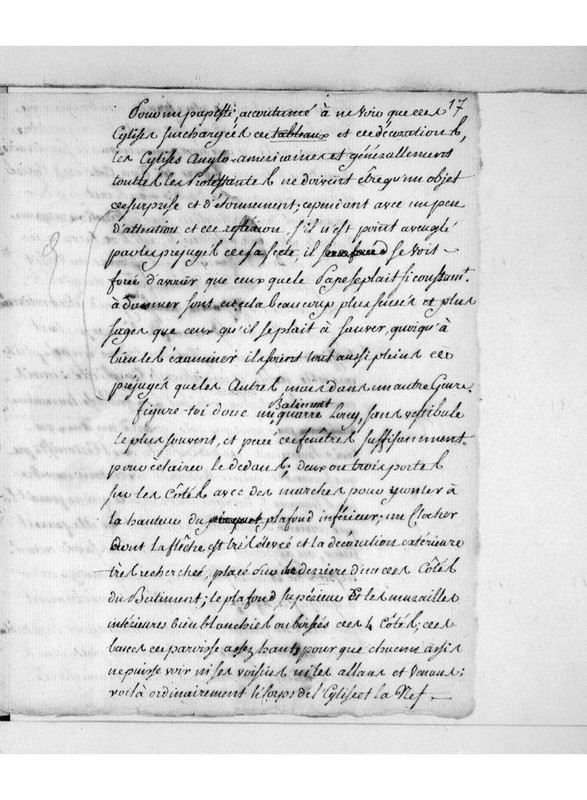 17
Pour un papiste, accoutumé à ne voir que des
Eglises surchargées de tableaux et de décorations,
les Eglises Anglo-américaines et générallement
touttes les Protestantes ne doivent être qu'un objet
de surprise et d'étonnement; cependant avec un peu
d'attention et de reflexion s'il n'est point aveuglé
par les préjugés de sa secte il se voit
forcé d'avouer que ceux que le Pape se plait si constamt.
à damner sont en cela beaucoup plus sensés et plus
sages que ceux qu'il se plait à sauver, quoiqu'à
bien les examiner ils soient tout aussi pleins de
préjugés que les Autres mais dans un autre Genre.
figure-toi donc un Batiment quarré Long, sans vestibule
le plus souvent, et percé de fenêtres suffisamment
pour eclairer le dedans; deux ou trois portes
sur les Côtés avec des marches pour monter à
la hauteur du plafond inférieur; un Clocher
dont la flêche est très élevée et la décoration extérieure
très recherchée, placé sur le derriere d'un des Côtés
du Batiment; le plafond supérieur Et les murailles
intérieures bien blanchies ou boisées des 4 Côtés; des
bancs de paroisse assez hauts pour que chacun assis
ne puisse voir ni ses voisins ni les allans et Venans:
voilà ordinairement le Corps de l'Eglise et la Nef.